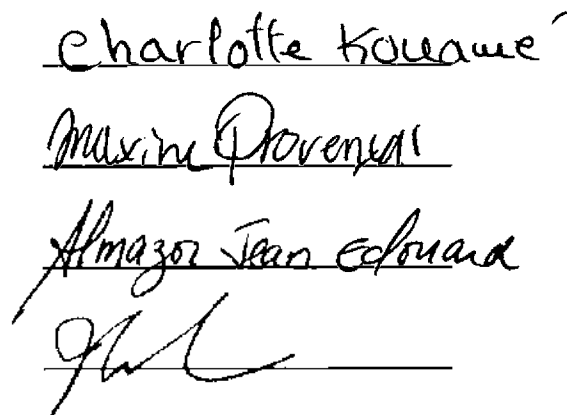 Charlotte Kouamé
Maxime Provençal
Almazor Jean Edouard